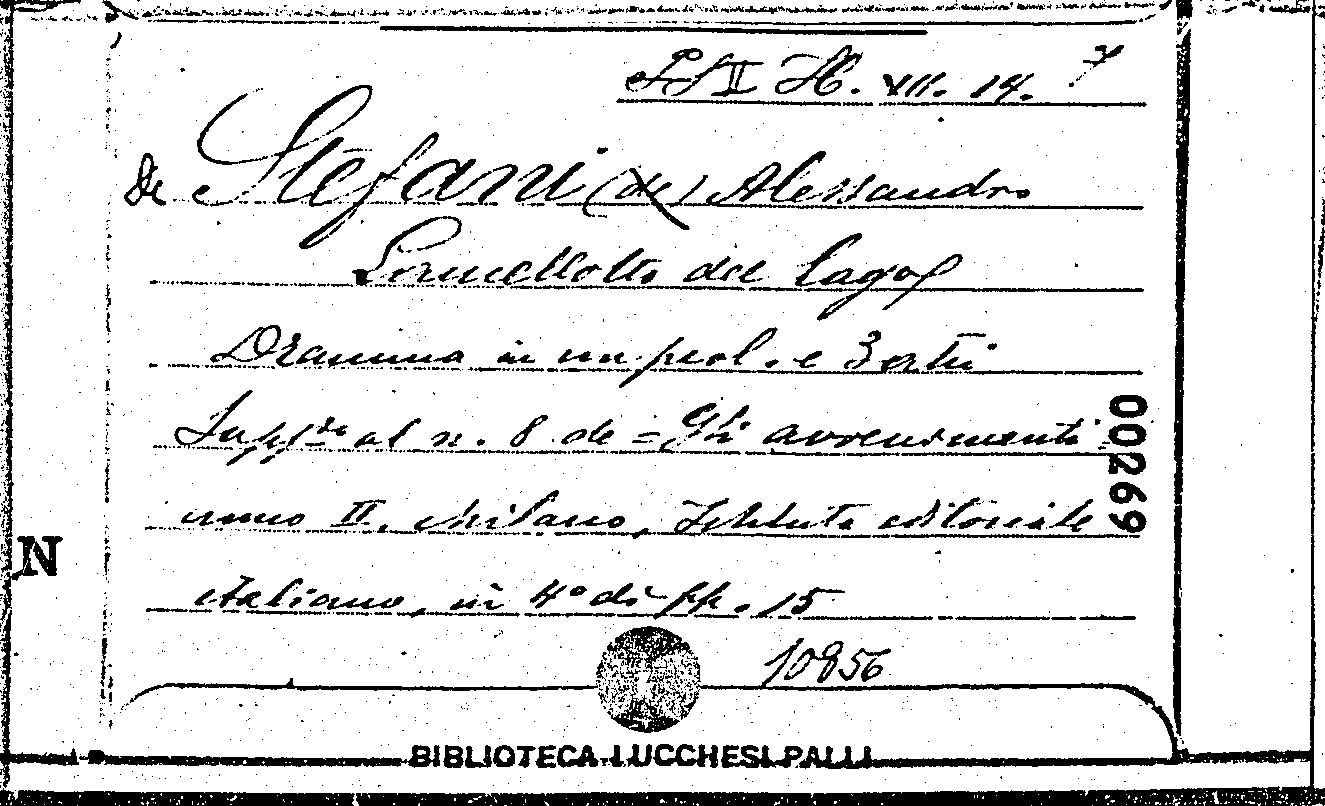 II H. VII. 14. 7
De Stefani (de) Alessandro
Lancellotto del lago
Dramma in un prol. e 3 atti
Suppl.to al n. 8 de = Gli avvenimenti
anno II. Milano, Istituto editoriale
italiano, in 4° di pp. 15
10856
00269
N
BIBLIOTECA LUCCHESI PALLI